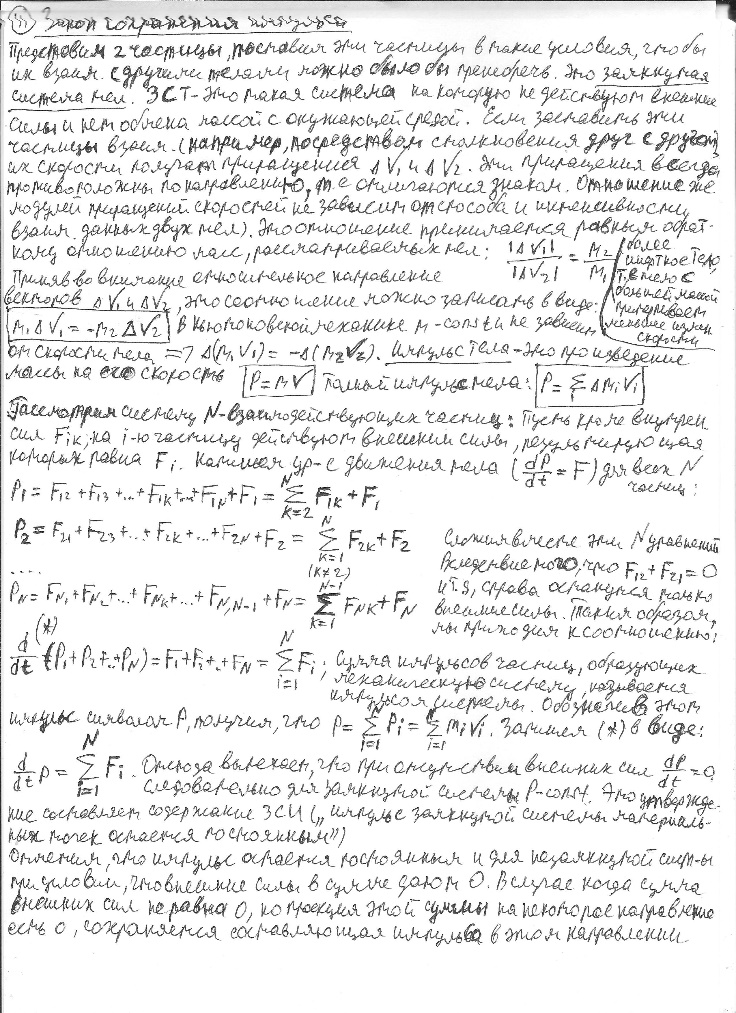 Закон сохранения импульса
Представим 2 частицы, поставим эти частицы в такие условия, чтобы
их взаим. с другими телами можно было бы пренебречь. Это замкнутая
система тел. ЗСТ - это такая система на которую не действуют внешние
силы и нет обмена массой с окружающей средой. Если заставить эти
частицы взаим. (например, посредством столкновения друг с другом),
их скорости получат приращения ΔV₁ и ΔV₂. Эти приращения всегда
противоположны по направлению, т.е отличаются знаком. Отношение же
модулей приращений скоростей не зависит от способа и интенсивности
взаим данных двух тел). Это отношение принимается равным обрат-
ному отношению масс, рассматриваемых тел: |ΔV₁|/|ΔV₂| = m₂/m₁ (более инертное тело, т.е тело с большей массой претерпевает меньшее измен скорости)
Приняв во внимание относительное направление
векторов ΔV₁ и ΔV₂, это соотношение можно записать в виде:
m₁ΔV₁ = -m₂ΔV₂ В ньютоновской механике m-const и не зависит
от скорости тела => Δ(m₁V₁) = -Δ(m₂V₂). Импульс тела - это произведение
массы на его скорость P=mV Полный импульс тела: P=∑ᵢ Δmᵢ Vᵢ
Рассмотрим систему N-взаимодействующих частиц: Пусть кроме внутрен
сил Fᵢₖ, на i-ю частицу действуют внешнии силы, результирующая
которых равна Fᵢ. Напишем ур-е движения тела (dP/dt = F) для всех N
частиц:
P₁ = F₁₂ + F₁₃ +...+ F₁ₖ +...+ F₁N + F₁ = ∑(k=2, N) F₁ₖ + F₁
P₂ = F₂₁ + F₂₃ +...+ F₂ₖ +...+ F₂N + F₂ = ∑(k=1 (k≠2), N) F₂ₖ + F₂
....
PN = FN₁ + FN₂ +...+ FNₖ +...+ FN,N-1 + FN = ∑(k=1, N) FNK + FN
Сложим вместе эти N уравнений
Вследствие того, что F₁₂ + F₂₁ = 0
и т.д, справа останутся только
внешние силы. Таким образом,
мы приходим к соотношению:
(*)
d/dt (P₁ + P₂ +...PN) = F₁ + F₂ +..+ FN = ∑(i=1, N) Fᵢ; Сумма импульсов частиц, образующих
механическую систему, называется
импульсом системы. Обозначив этот
импульс символом P, получим, что P = ∑(i=1, N) Pᵢ = ∑(i=1, N) mᵢVᵢ. Запишем (*) в виде:
d/dt P = ∑(i=1, N) Fᵢ. Отсюда вытекает, что при отсутствии внешних сил dP/dt = 0,
следовательно для замкнутой системы P-const. Это утвержде-
ние составляет содержание ЗСИ („импульс замкнутой системы материаль-
ных точек остается постоянным")
Отметим, что импульс остается постоянным и для незамкнутой сист-ы
при условии, что внешние силы в сумме дают 0. В случае когда сумма
внешних сил не равна 0, но проекция этой суммы на некоторое направление
есть 0, сохраняется составляющая импульса в этом направлении.